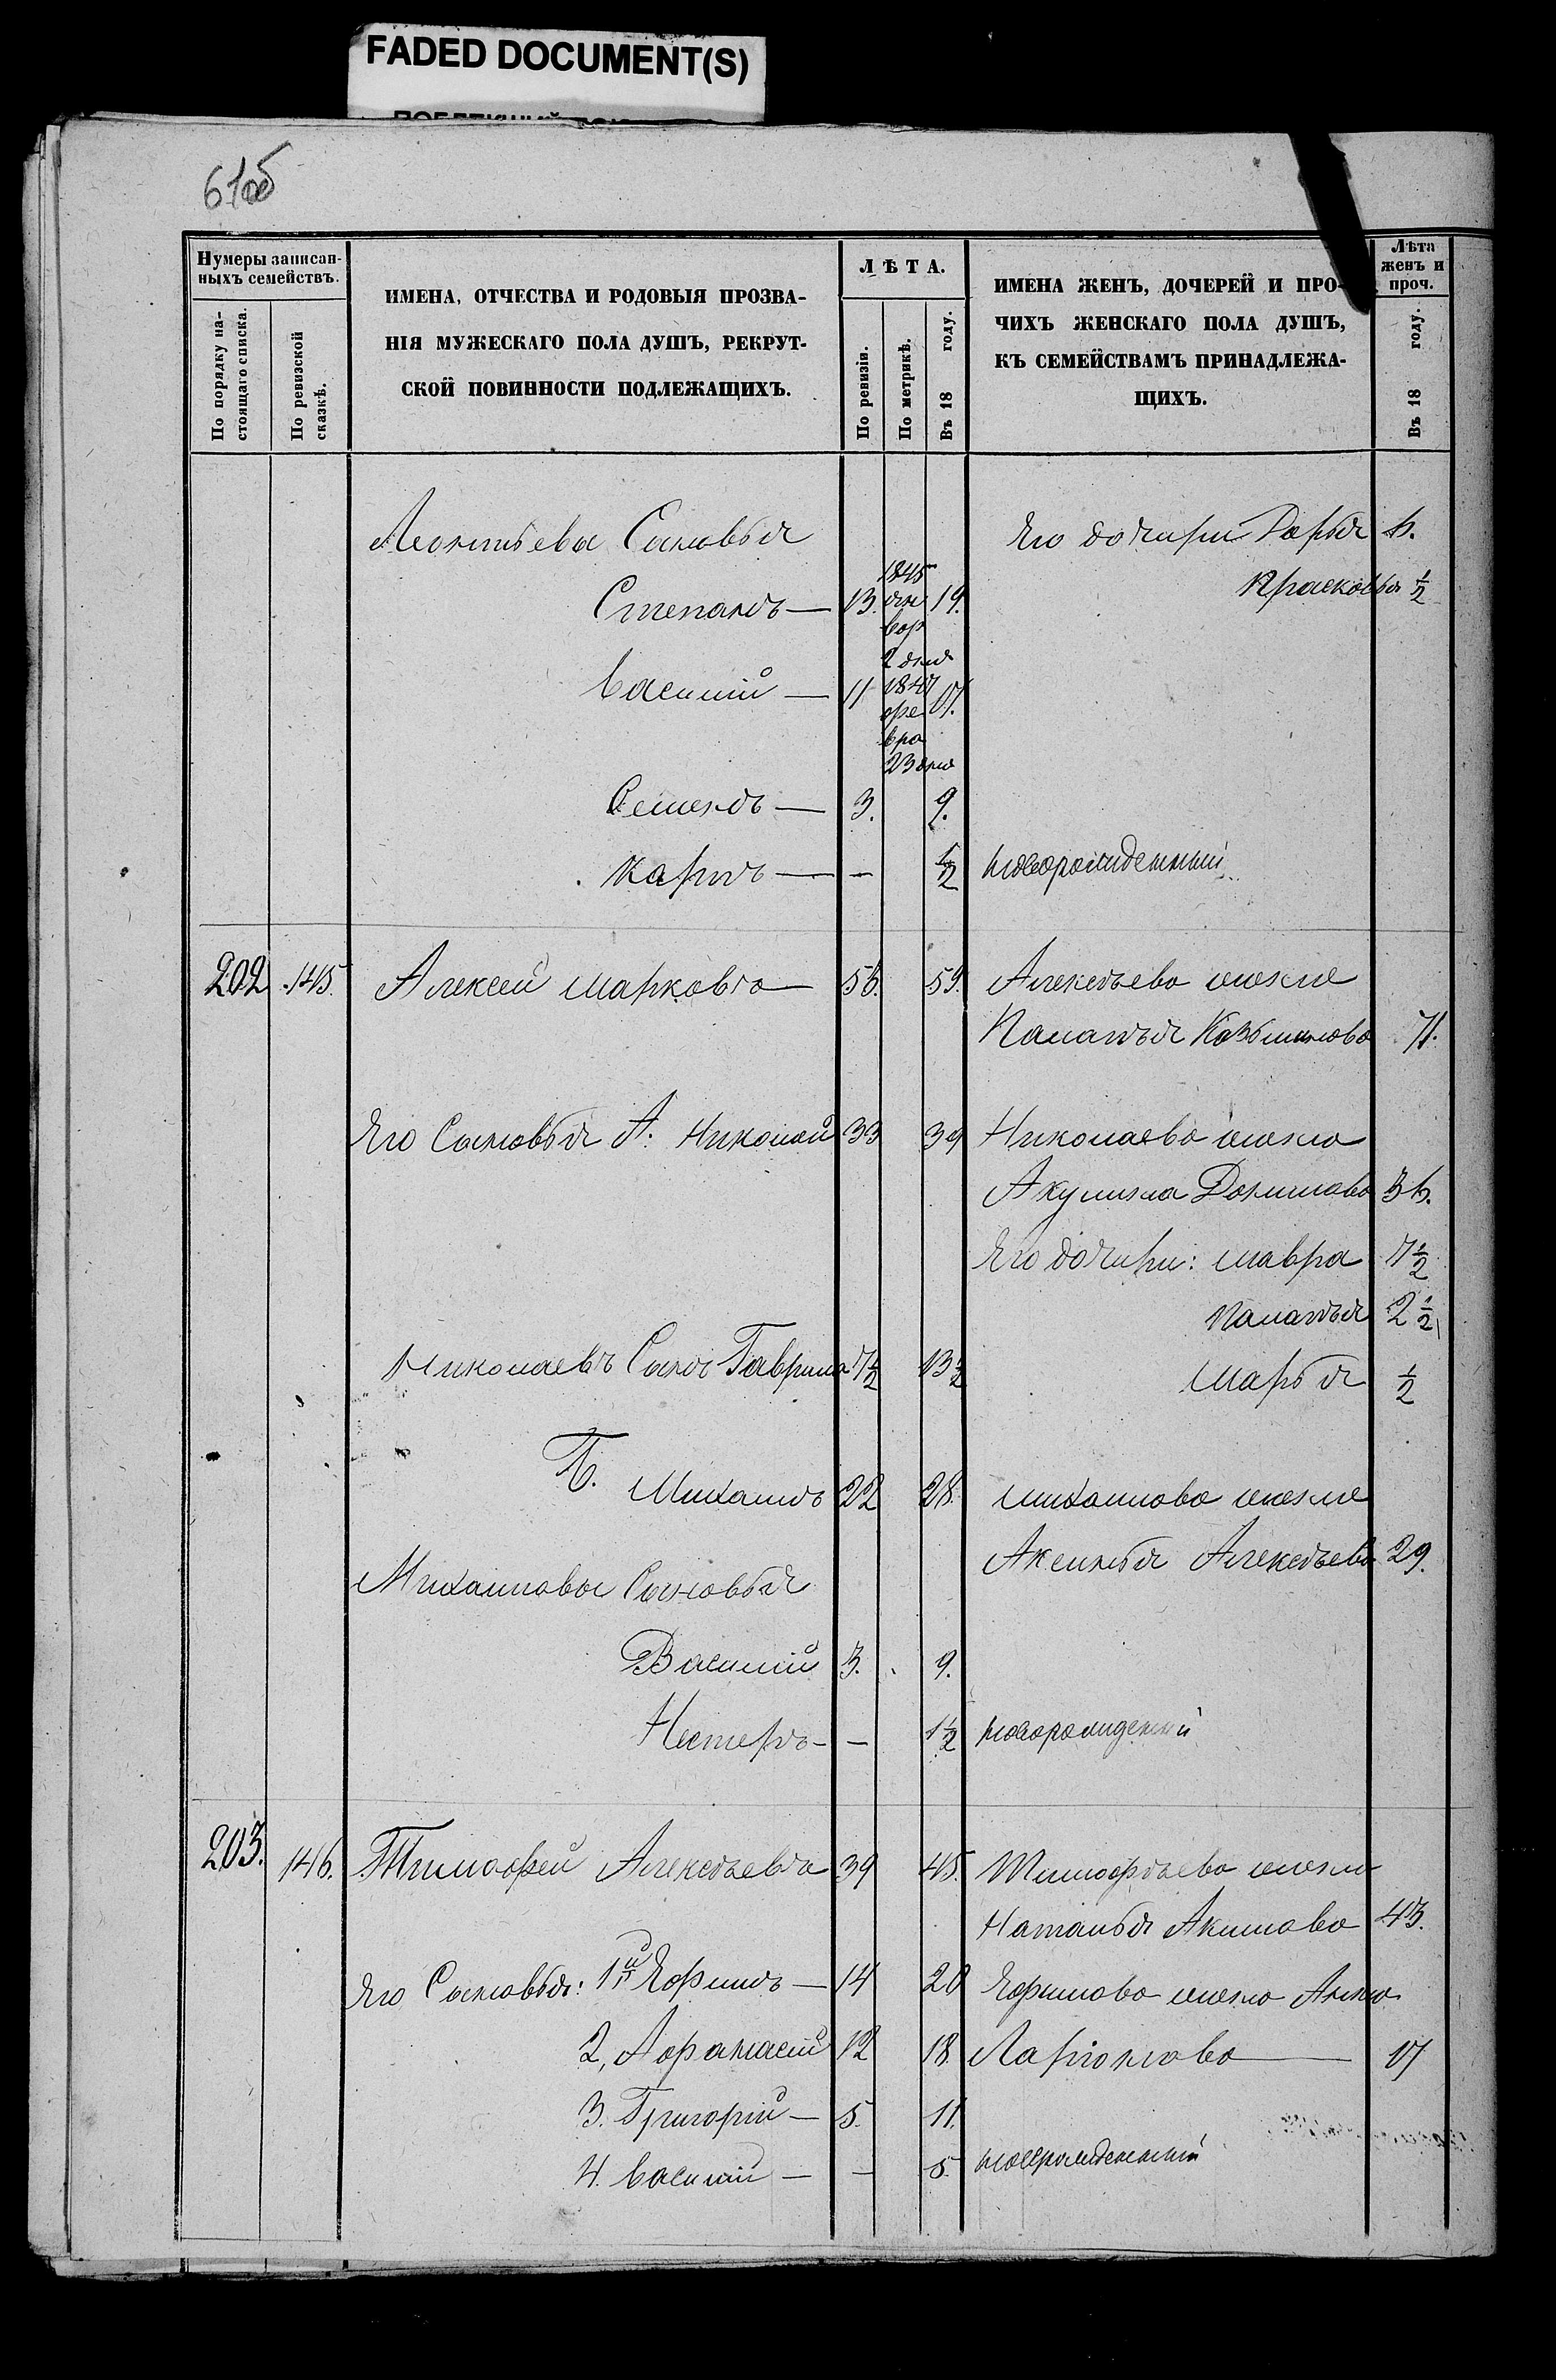 FADED DOCUMENT(S)
61об
Нумеры записан-
ныхъ семействъ.
По порядку на-
стоящаго списка.
По ревизской
сказкѣ.
ИМЕНА, ОТЧЕСТВА И РОДОВЫЯ ПРОЗВА-
НІЯ МУЖЕСКАГО ПОЛА ДУШЪ, РЕКРУТ-
СКОЙ ПОВИННОСТИ ПОДЛЕЖАЩИХЪ.
ЛѢТА.
По ревизіи.
По метрикѣ.
Въ 18 году.
ИМЕНА ЖЕНЪ, ДОЧЕРЕЙ И ПРО-
ЧИХЪ ЖЕНСКАГО ПОЛА ДУШЪ,
КЪ СЕМЕЙСТВАМЪ ПРИНАДЛЕЖА-
ЩИХЪ.
Лѣта
женъ и
проч.
Въ 18 году.
Леонтьевы Сыновья
Его дочири Дарья
Прасковья ½
Степанъ — 13. 1845 ян вор 2 дня 19.
Василий — 11 1847 фе вра 23 дня 17.
Семенъ — 3. 9.
Карпъ — — ½ новорожденный
202 145. Алексей Марковъ — 56. 59. Алексѣева жена
Палагѣя Козьминова 71.
Его Сыновья А. Николай 33 39 Николаева жена
Акулина Данилова 36.
Его дочири: Мавра 7½
Палагѣя 2½
Николаевъ Сынъ Гаврила 7½ 13½ Марья ½
Б. Михаилъ 22 28. Михаилова жена
Аксинья Алексѣева 29.
Михаиловы Сыновья
Василий 3. 9.
Нестеръ — — 1½ новорожденый
203. 146. Тимофей Алексѣевъ 39 45. Тимофѣева жена
Наталья Акимова 43.
Его Сыновья: 1й Ефимъ — 14 20 Ефимова жена Анна
2, Афанасий 12 18 Ларіонова — 17
3. Григорий — 5. 11.
4. Василий — — 5. новорожденный